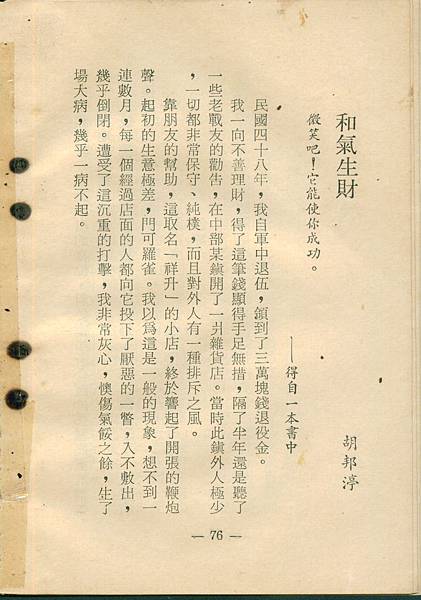 和氣生財
胡邦渟
微笑吧！它能使你成功。
——得自一本書中
民國四十八年，我自軍中退伍，領到了三萬塊錢退役金。
我一向不善理財，得了這筆錢顯得手足無措，隔了半年還是聽了
一些老戰友的勸告，在中部某鎮開了一爿雜貨店。當時此鎮外人極少
，一切都非常保守、純樸，而且對外人有一種排斥之風。
靠朋友的幫助，這取名「祥升」的小店，終於響起了開張的鞭炮
聲。起初的生意極差，門可羅雀。我以為這是一般的現象，想不到一
連數月，每一個經過店面的人都向它投下了厭惡的一瞥，入不敷出，
幾乎倒閉。遭受了這沉重的打擊，我非常灰心，懊傷氣餒之餘，生了
場大病，幾乎一病不起。
— 76 —